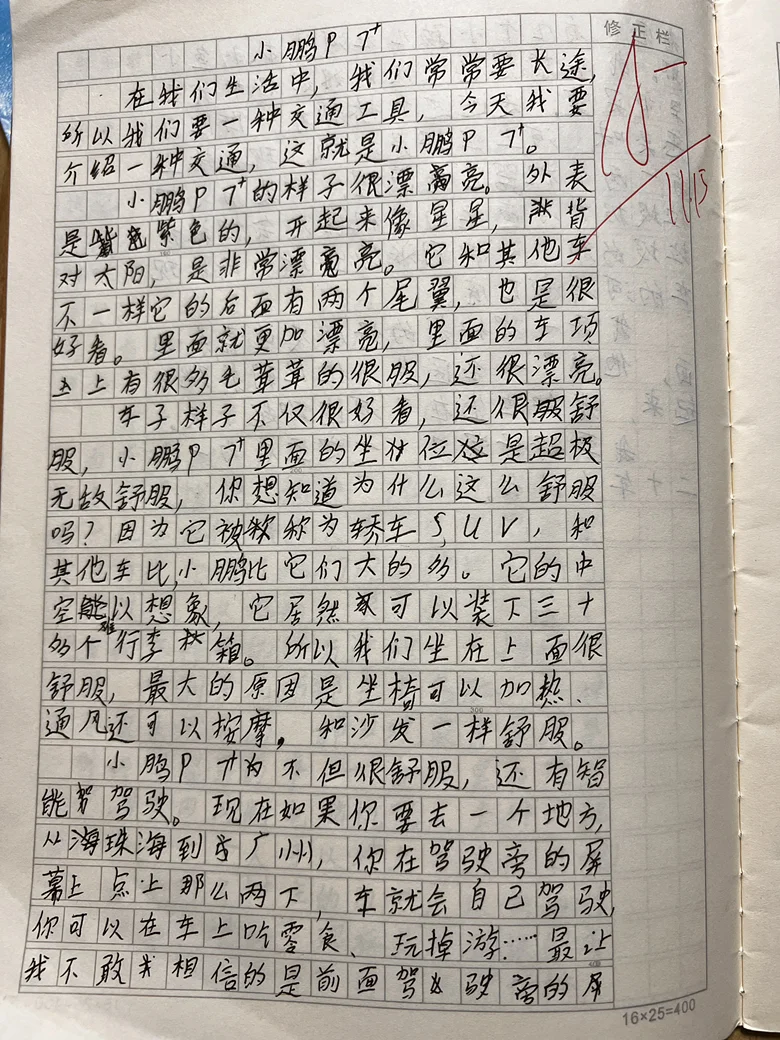 修正栏
小鹏P7+
A-
11.13
在我们生活中，我们常常要长途，
所以我们要一种交通工具，今天我要
介绍一种交通，这就是小鹏P7+。
小鹏P7+的样子很漂亮。外表
是紫色的，开起来像星星，背
对太阳，是非常漂亮。它和其他车
不一样它的后面有两个尾翼，也是很
好看。里面就更加漂亮，里面的车项
上有很多毛茸茸的很服，还很漂亮。
车子样子不仅很好看，还很舒
服，小鹏P7+里面的坐位是超极
无敌舒服，你想知道为什么这么舒服
吗？因为它被称为轿车SUV，和
其他车比，小鹏比它们大的多。它的中
空难以想象，它居然可以装下三十
多个行李箱。所以我们坐在上面很
舒服，最大的原因是坐椅可以加热、
通风还可以按摩，和沙发一样舒服。
小鹏P7+不但很舒服，还有智
能驾驶。现在如果你要去一个地方，
从珠海到广州，你在驾驶旁的屏
幕上点上那么两下，车就会自己驾驶，
你可以在车上吃零食、玩掉游……最让
我不敢相信的是前面驾驶旁的屏
16×25=400